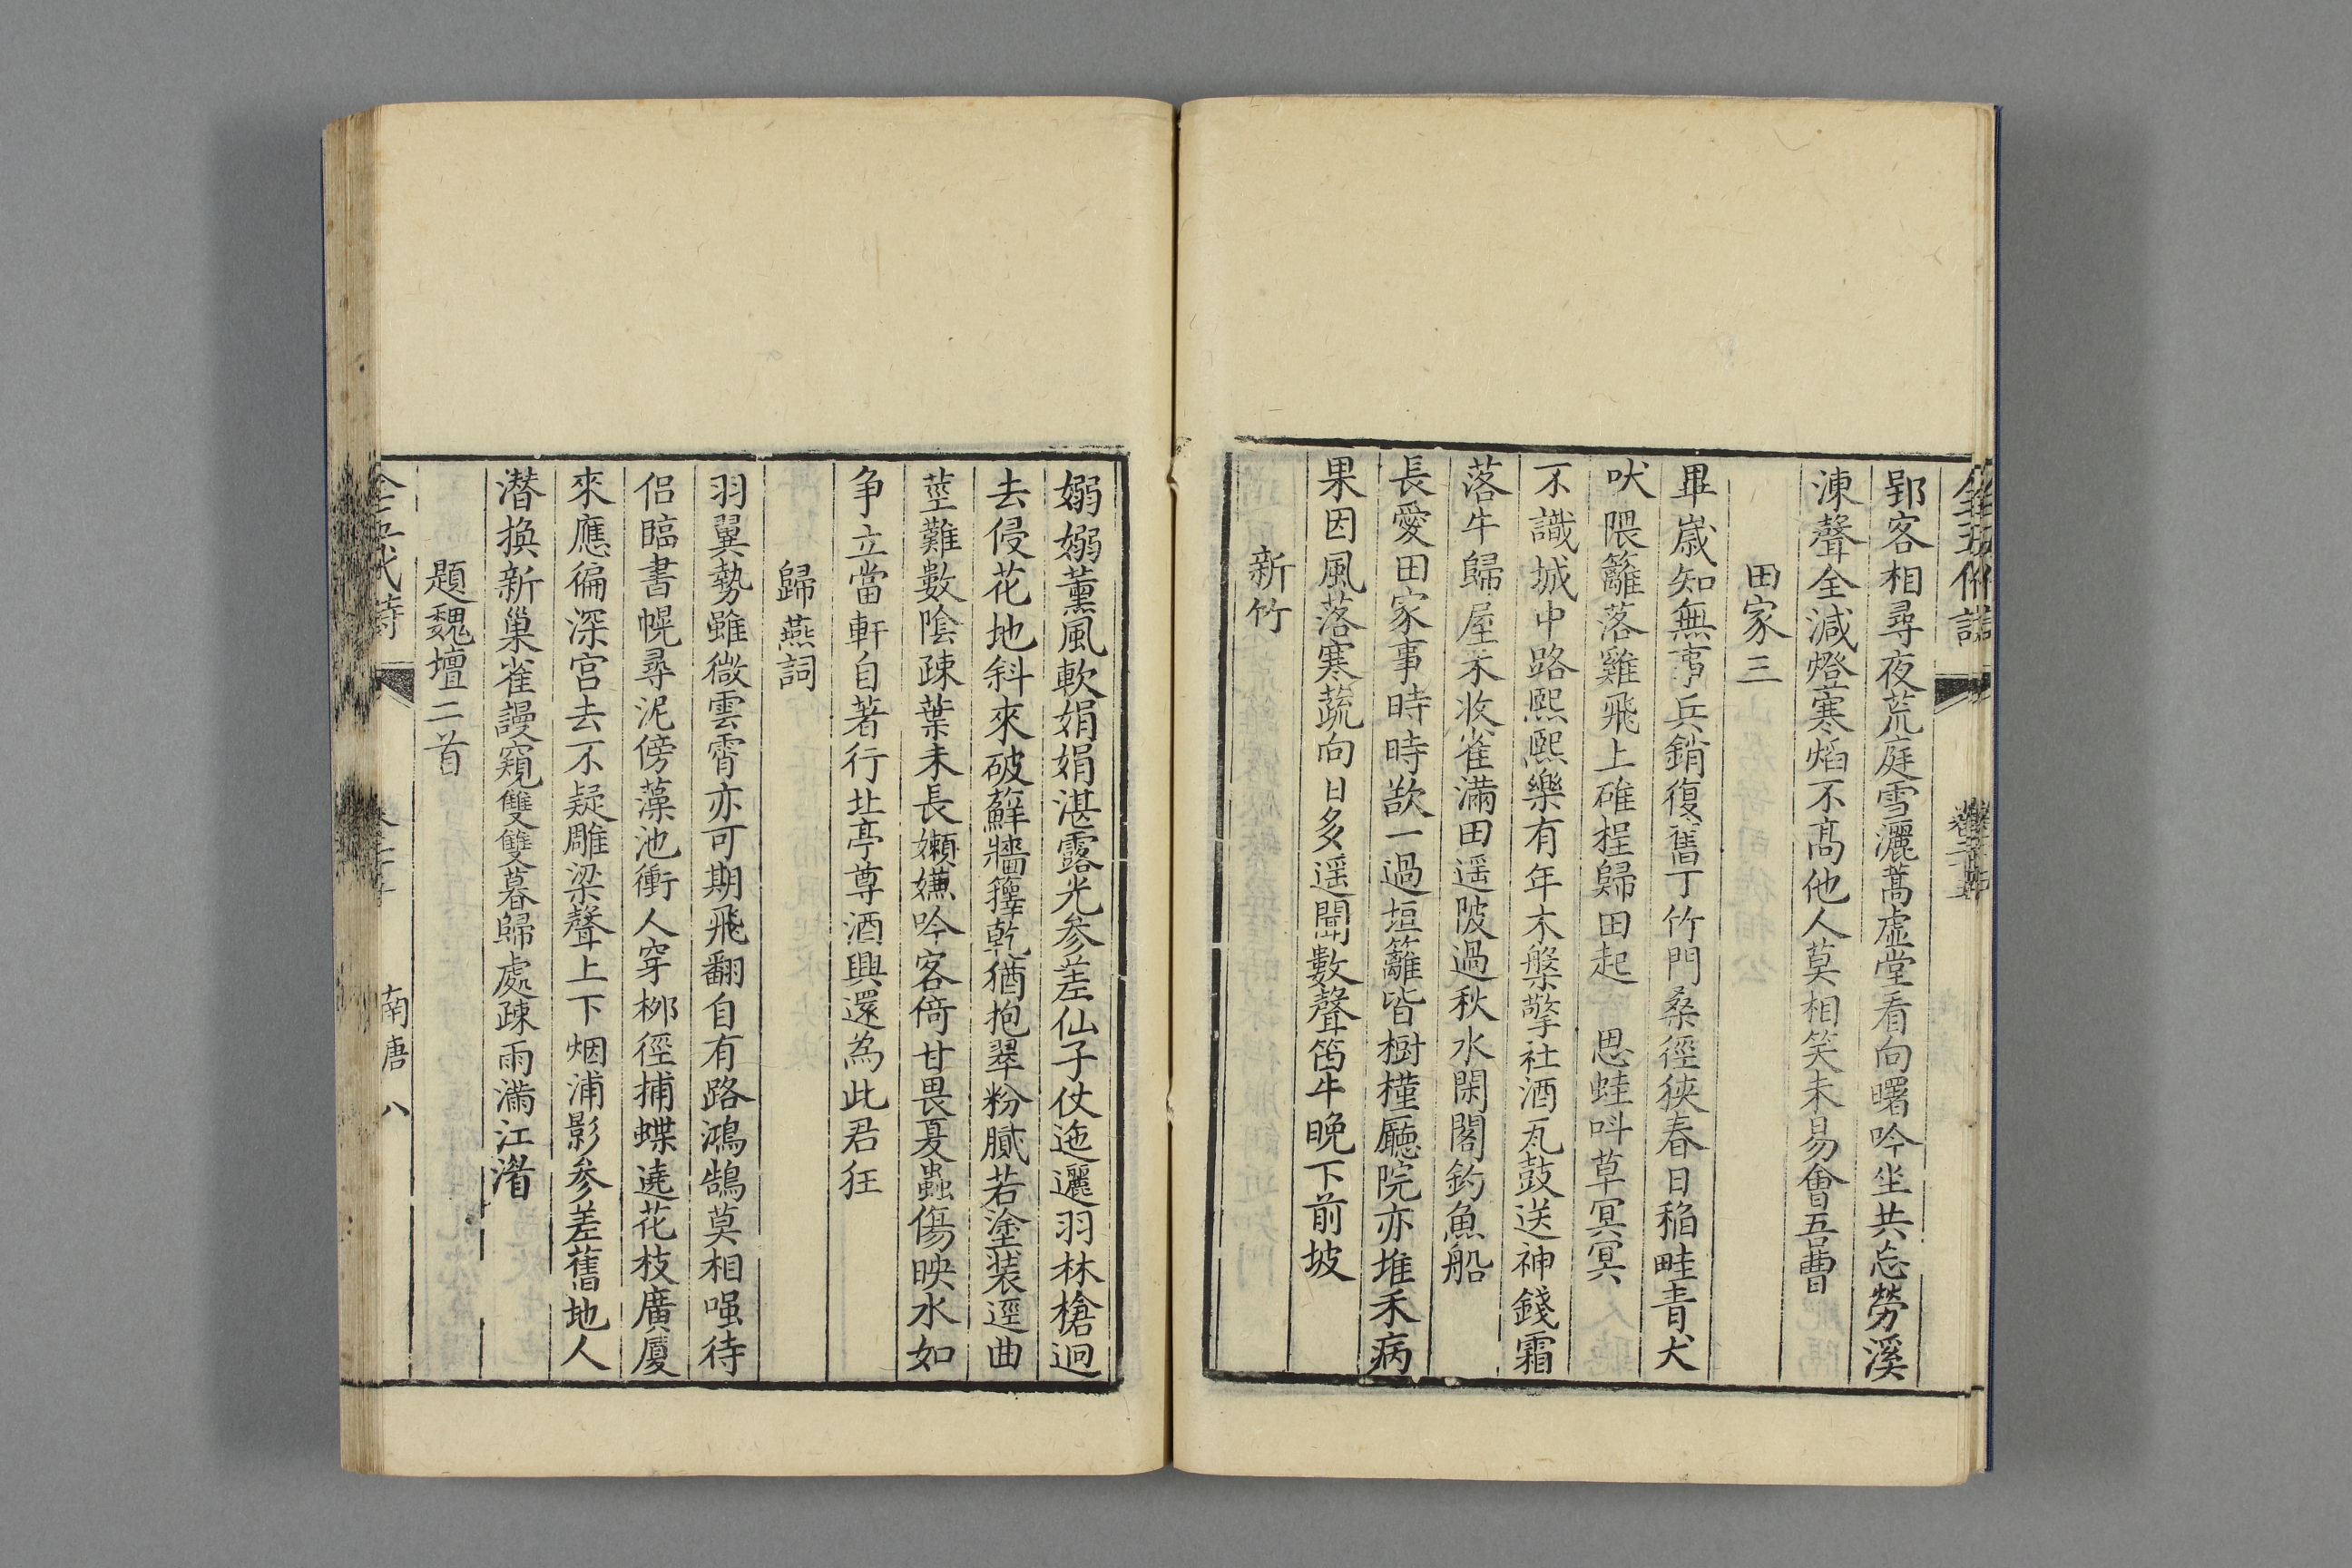 郢客相尋夜荒庭雪灑蒿虛堂看向曙吟坐共忘勞溪
凍聲全減燈寒焰不高他人莫相笑未易會吾曹
田家三
畢歲知無事兵銷復舊丁竹門桑徑狹春日稻畦青犬
吠隈籬落雞飛上碓桯歸田起 思蛙呌草冥冥
不識城中路熙熙樂有年木槃擎社酒瓦鼓送神錢霜
落牛歸屋禾收雀滿田遥陂過秋水閑閣釣魚船
長愛田家事時時歆一過垣籬皆樹槿廳院亦堆禾病
果因風落寒蔬向日多遥聞數聲笛牛晚下前坡
新竹
嫋嫋薰風軟娟娟湛露光参差仙子仗迤邐羽林槍迥
去侵花地斜來破蘚牆籜乾猶抱翠粉膩若塗装逕曲
莖難數陰疎葉未長嬾嫌吟客倚甘畏夏蟲傷映水如
争立當軒自著行北亭尊酒興還為此君狂
歸燕詞
羽翼勢雖微雲霄亦可期飛翻自有路鴻鵠莫相嗤待
侣臨書幌尋泥傍藻池衝人穿桞徑捕蝶遶花枝廣厦
來應徧深宫去不疑雕梁聲上下烟浦影参差舊地人
潜換新巢雀謾窺雙雙暮歸處疎雨滿江湄
題魏壇二首
全五代詩
南唐 八